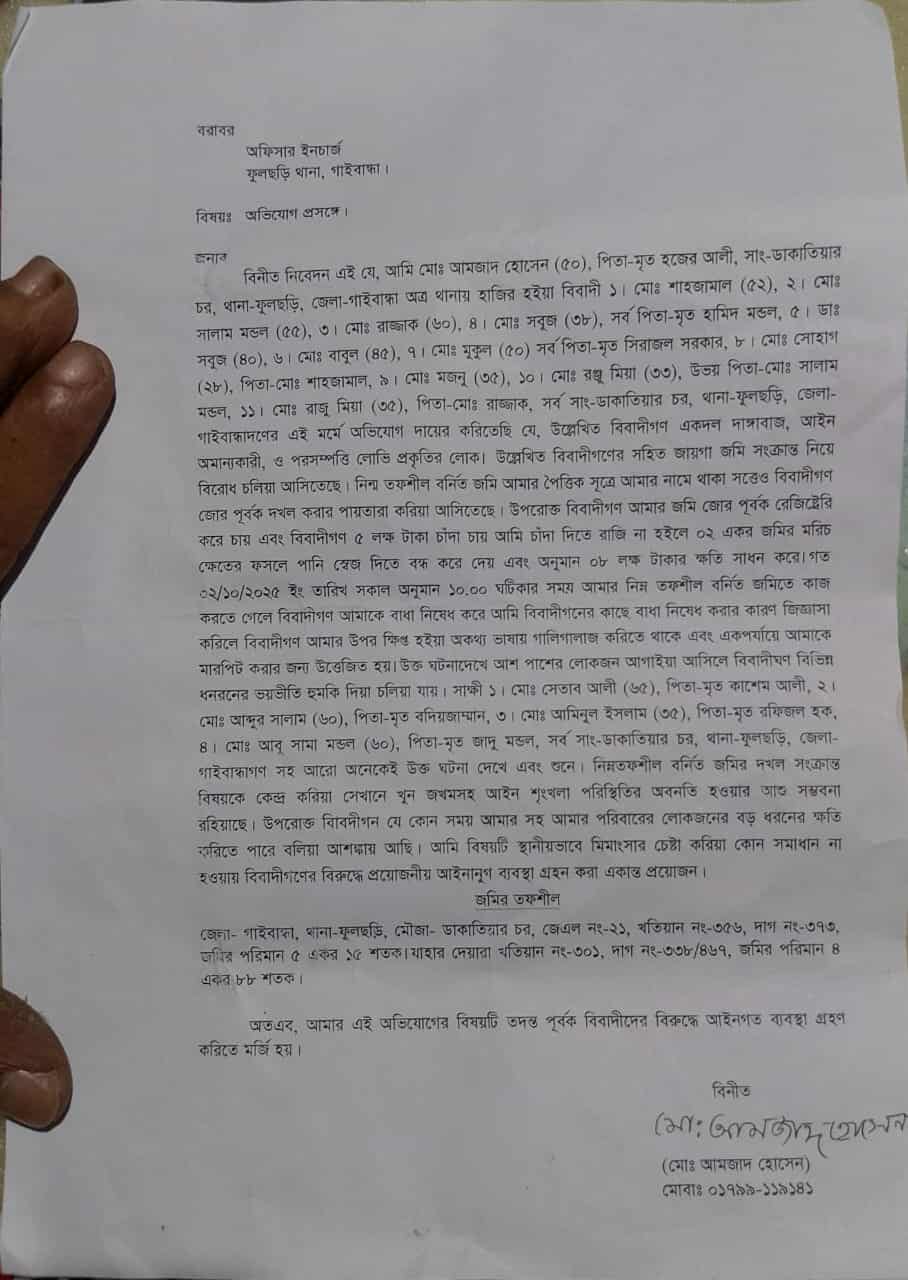 বরাবর
অফিসার ইনচার্জ
ফুলছড়ি থানা, গাইবান্ধা।
বিষয়ঃ অভিযোগ প্রসঙ্গে।
জনাব
বিনীত নিবেদন এই যে, আমি মোঃ আমজাদ হোসেন (৫০), পিতা-মৃত হজের আলী, সাং-ডাকাতিয়ার
চর, থানা-ফুলছড়ি, জেলা-গাইবান্ধা অত্র থানায় হাজির হইয়া বিবাদী ১। মোঃ শাহজামাল (৫২), ২। মোঃ
সালাম মন্ডল (৫৫), ৩। মোঃ রাজ্জাক (৬০), ৪। মোঃ সবুজ (৩৮), সর্ব পিতা-মৃত হামিদ মন্ডল, ৫। ডাঃ
সবুজ (৪০), ৬। মোঃ বাবুল (৪৫), ৭। মোঃ মুকুল (৫০) সর্ব পিতা-মৃত সিরাজল সরকার, ৮। মোঃ সোহাগ
(২৮), পিতা-মোঃ শাহজামাল, ৯। মোঃ মজনু (৩৫), ১০। মোঃ রঞ্জু মিয়া (৩৩), উভয় পিতা-মোঃ সালাম
মন্ডল, ১১। মোঃ রাজু মিয়া (৩৫), পিতা-মোঃ রাজ্জাক, সর্ব সাং-ডাকাতিয়ার চর, থানা-ফুলছড়ি, জেলা-
গাইবান্ধাদণের এই মর্মে অভিযোগ দায়ের করিতেছি যে, উল্লেখিত বিবাদীগণ একদল দাঙ্গাবাজ, আইন
অমান্যকারী, ও পরসম্পত্তি লোভি প্রকৃতির লোক। উল্লেখিত বিবাদীগণের সহিত জায়গা জমি সংক্রান্ত নিয়ে
বিরোধ চলিয়া আসিতেছে। নিম্ম তফশীল বর্নিত জমি আমার পৈত্তিক সূত্রে আমার নামে থাকা সত্তেও বিবাদীগণ
জোর পূর্বক দখল করার পায়তারা করিয়া আসিতেছে। উপরোক্ত বিবাদীগণ আমার জমি জোর পূর্বক রেজিষ্ট্রেরি
করে চায় এবং বিবাদীগণ ৫ লক্ষ টাকা চাঁদা চায় আমি চাঁদা দিতে রাজি না হইলে ০২ একর জমির মরিচ
ক্ষেতের ফসলে পানি স্বেজ দিতে বন্ধ করে দেয় এবং অনুমান ০৮ লক্ষ টাকার ক্ষতি সাধন করে। গত
০২/১০/২০২৫ ইং তারিখ সকাল অনুমান ১০.০০ ঘটিকার সময় আমার নিম্ন তফশীল বর্নিত জমিতে কাজ
করতে গেলে বিবাদীগণ আমাকে বাধা নিষেধ করে আমি বিবাদীগনের কাছে বাধা নিষেধ করার কারণ জিজ্ঞাসা
করিলে বিবাদীগণ আমার উপর ক্ষিপ্ত হইয়া অকথ্য ভাষায় গালিগালাজ করিতে থাকে এবং একপর্যায়ে আমাকে
মারপিট করার জন্য উত্তেজিত হয়। উক্ত ঘটনাদেখে আশ পাশের লোকজন আগাইয়া আসিলে বিবাদীঘণ বিভিন্ন
ধনরনের ভয়ভীতি হুমকি দিয়া চলিয়া যায়। সাক্ষী ১। মোঃ সেতাব আলী (৬৫), পিতা-মৃত কাশেম আলী, ২।
মোঃ আব্দুর সালাম (৬০), পিতা-মৃত বদিয়জাম্মান, ৩। মোঃ আমিনুল ইসলাম (৩৫), পিতা-মৃত রফিজল হক,
৪। মোঃ আবু সামা মন্ডল (৬০), পিতা-মৃত জাদু মন্ডল, সর্ব সাং-ডাকাতিয়ার চর, থানা-ফুলছড়ি, জেলা-
গাইবান্ধাগণ সহ আরো অনেকেই উক্ত ঘটনা দেখে এবং শুনে। নিম্নতফশীল বর্নিত জমির দখল সংক্রান্ত
বিষয়কে কেন্দ্র করিয়া সেখানে খুন জখমসহ আইন শৃংখলা পরিস্থিতির অবনতি হওয়ার আশু সম্ভবনা
রহিয়াছে। উপরোক্ত বিাবদীগন যে কোন সময় আমার সহ আমার পরিবারের লোকজনের বড় ধরনের ক্ষতি
করিতে পারে বলিয়া আশঙ্কায় আছি। আমি বিষয়টি স্থানীয়ভাবে মিমাংসার চেষ্টা করিয়া কোন সমাধান না
হওয়ায় বিবাদীগণের বিরুদ্ধে প্রয়োজনীয় আইনানুগ ব্যবস্থা গ্রহন করা একান্ত প্রয়োজন।
জমির তফশীল
জেলা- গাইবান্ধা, থানা-ফুলছড়ি, মৌজা- ডাকাতিয়ার চর, জেএল নং-২১, খতিয়ান নং-৩৫৬, দাগ নং-৩৭৩,
জমির পরিমান ৫ একর ১৫ শতক। যাহার দেয়ারা খতিয়ান নং-৩০১, দাগ নং-৩৩৮/৪৬৭, জমির পরিমান ৪
একর ৮৮ শতক।
অতএব, আমার এই অভিযোগের বিষয়টি তদন্ত পূর্বক বিবাদীদের বিরুদ্ধে আইনগত ব্যবস্থা গ্রহণ
করিতে মর্জি হয়।
বিনীত
মো: আমজাদ হোসেন
(মোঃ আমজাদ হোসেন)
মোবাঃ ০১৭৯৯-১১৯১৪১